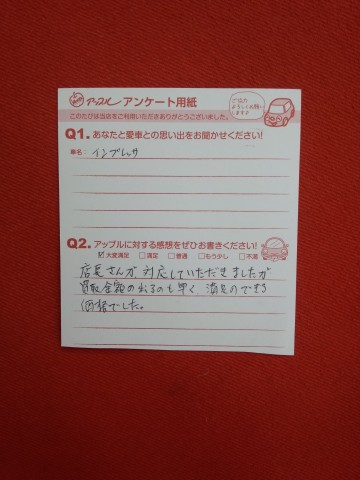 アップル アンケート用紙
ご協力
よろしくお願い
します♪
このたびは当店をご利用いただきありがとうございました。
Q1. あなたと愛車との思い出をお聞かせください!
車名: インプレッサ
Q2. アップルに対する感想をぜひお書きください!
☑大変満足 □満足 □普通 □もう少し □不満
店長さんが対応していただきましたが
買取金額の出るのも早く、満足のできる
価格でした。